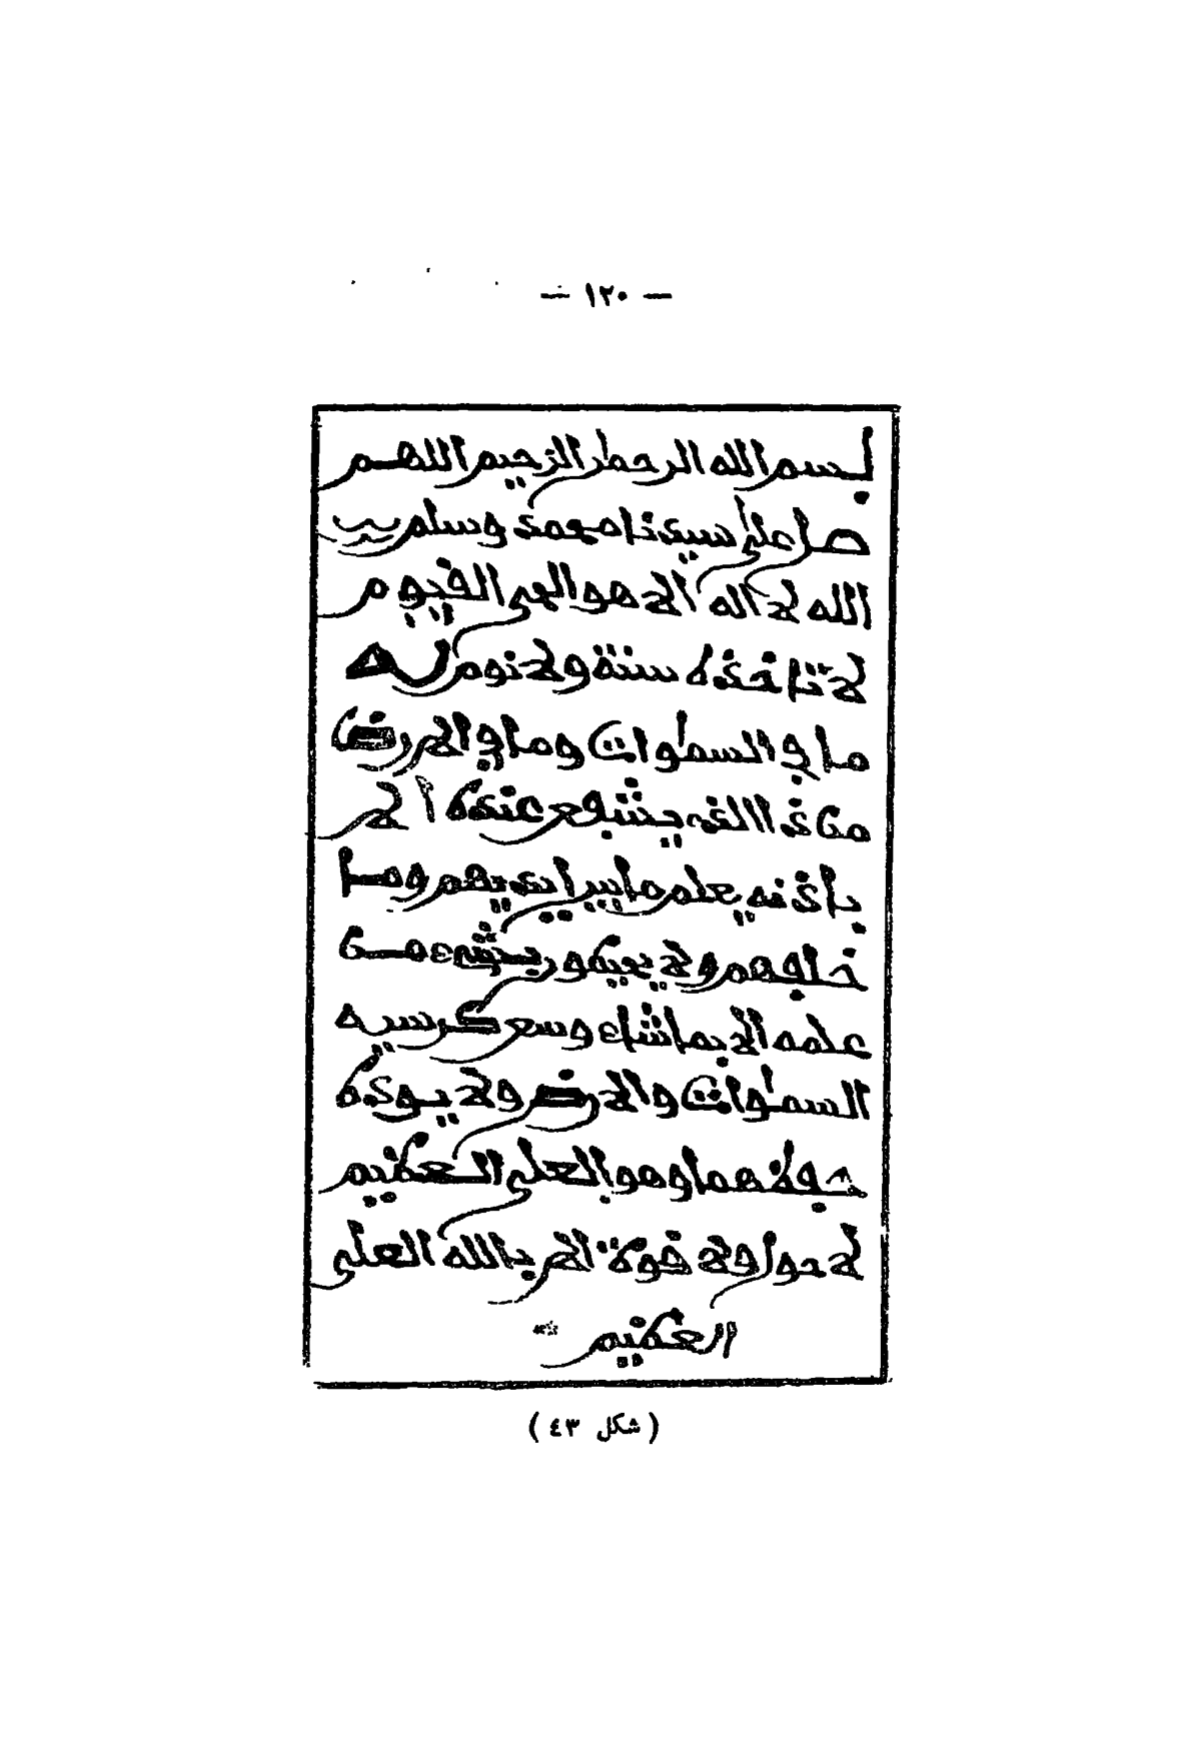 — ١٢٠ —
بسم الله الرحمن الرحيم اللهم
صل على سيدنا محمد وسلم
الله لا اله الا هو الحي القيوم
لا تاخذه سنة ولا نوم له
ما في السموات وما في الارض
من ذا الذي يشفع عنده الا
باذنه يعلم ما بين ايديهم وما
خلفهم ولا يحيطون بشيء من
علمه الا بما شاء وسع كرسيه
السموات والارض ولا يوده
حفظهما وهو العلي العظيم
لا حول ولا قوة الا بالله العلي
العظيم
( شكل ٤٣ )